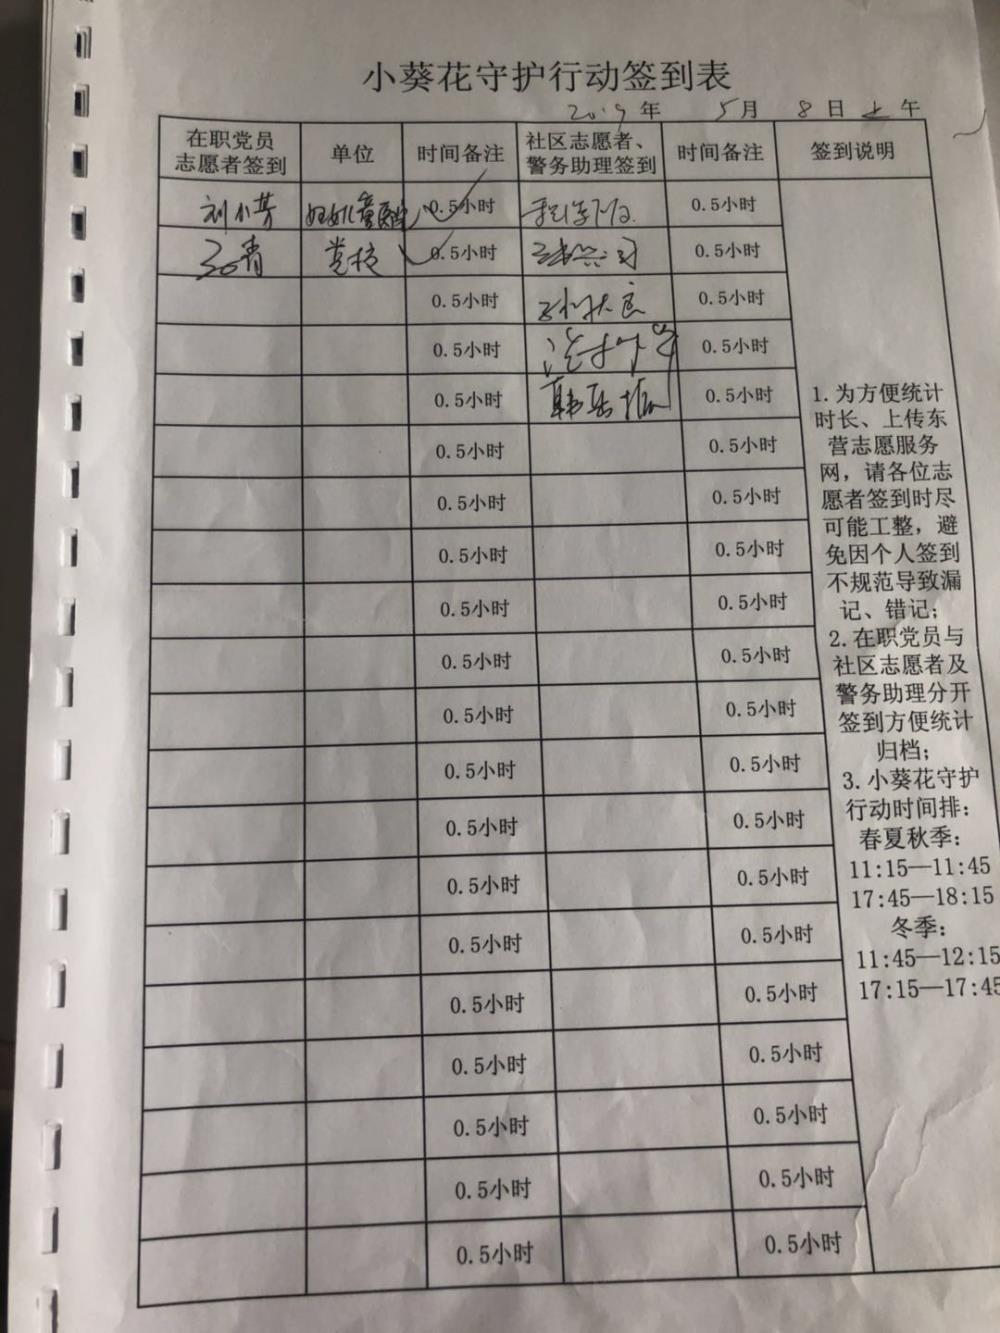 小葵花守护行动签到表
2019年 5月 8日上午
在职党员
志愿者签到
单位
时间备注
社区志愿者、
警务助理签到
时间备注
签到说明
刘小芳
妇女儿童医院
0.5小时
0.5小时
青
党校
0.5小时
0.5小时
0.5小时
0.5小时
0.5小时
0.5小时
韩
0.5小时
0.5小时
0.5小时
0.5小时
0.5小时
0.5小时
0.5小时
0.5小时
0.5小时
0.5小时
0.5小时
0.5小时
0.5小时
0.5小时
0.5小时
0.5小时
0.5小时
0.5小时
0.5小时
0.5小时
0.5小时
0.5小时
0.5小时
0.5小时
0.5小时
0.5小时
0.5小时
0.5小时
0.5小时
0.5小时
0.5小时
0.5小时
1.为方便统计
时长、上传东
营志愿服务
网，请各位志
愿者签到时尽
可能工整，避
免因个人签到
不规范导致漏
记、错记；
2.在职党员与
社区志愿者及
警务助理分开
签到方便统计
归档；
3.小葵花守护
行动时间排：
春夏秋季：
11:15—11:45
17:45—18:15
冬季：
11:45—12:15
17:15—17:45